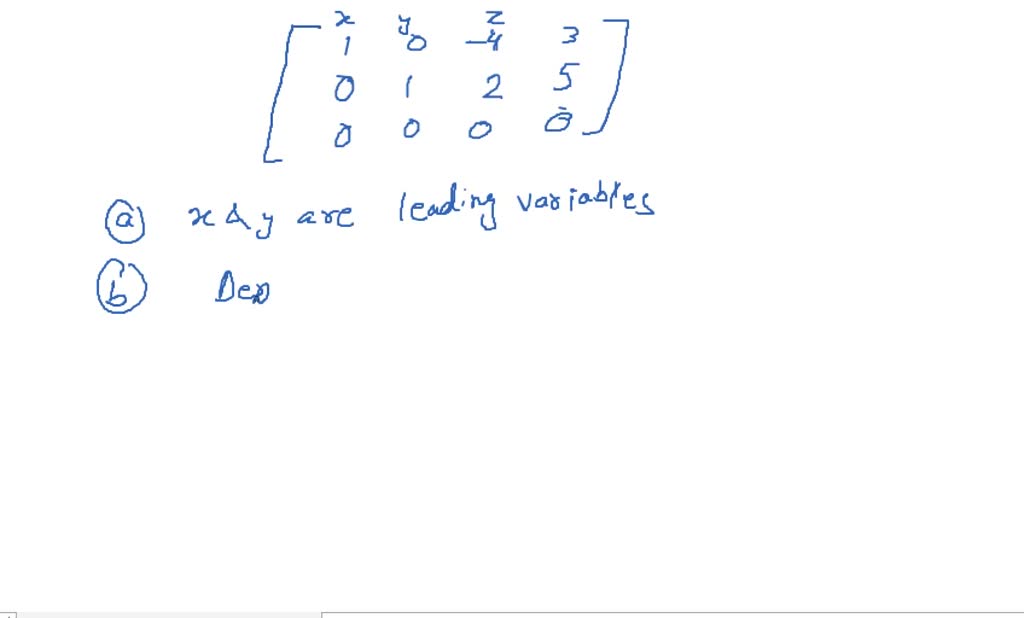 x y z
1 0 -4 3
0 1 2 5
0 0 0 0
(a) x & y are leading variables
(b) Dep